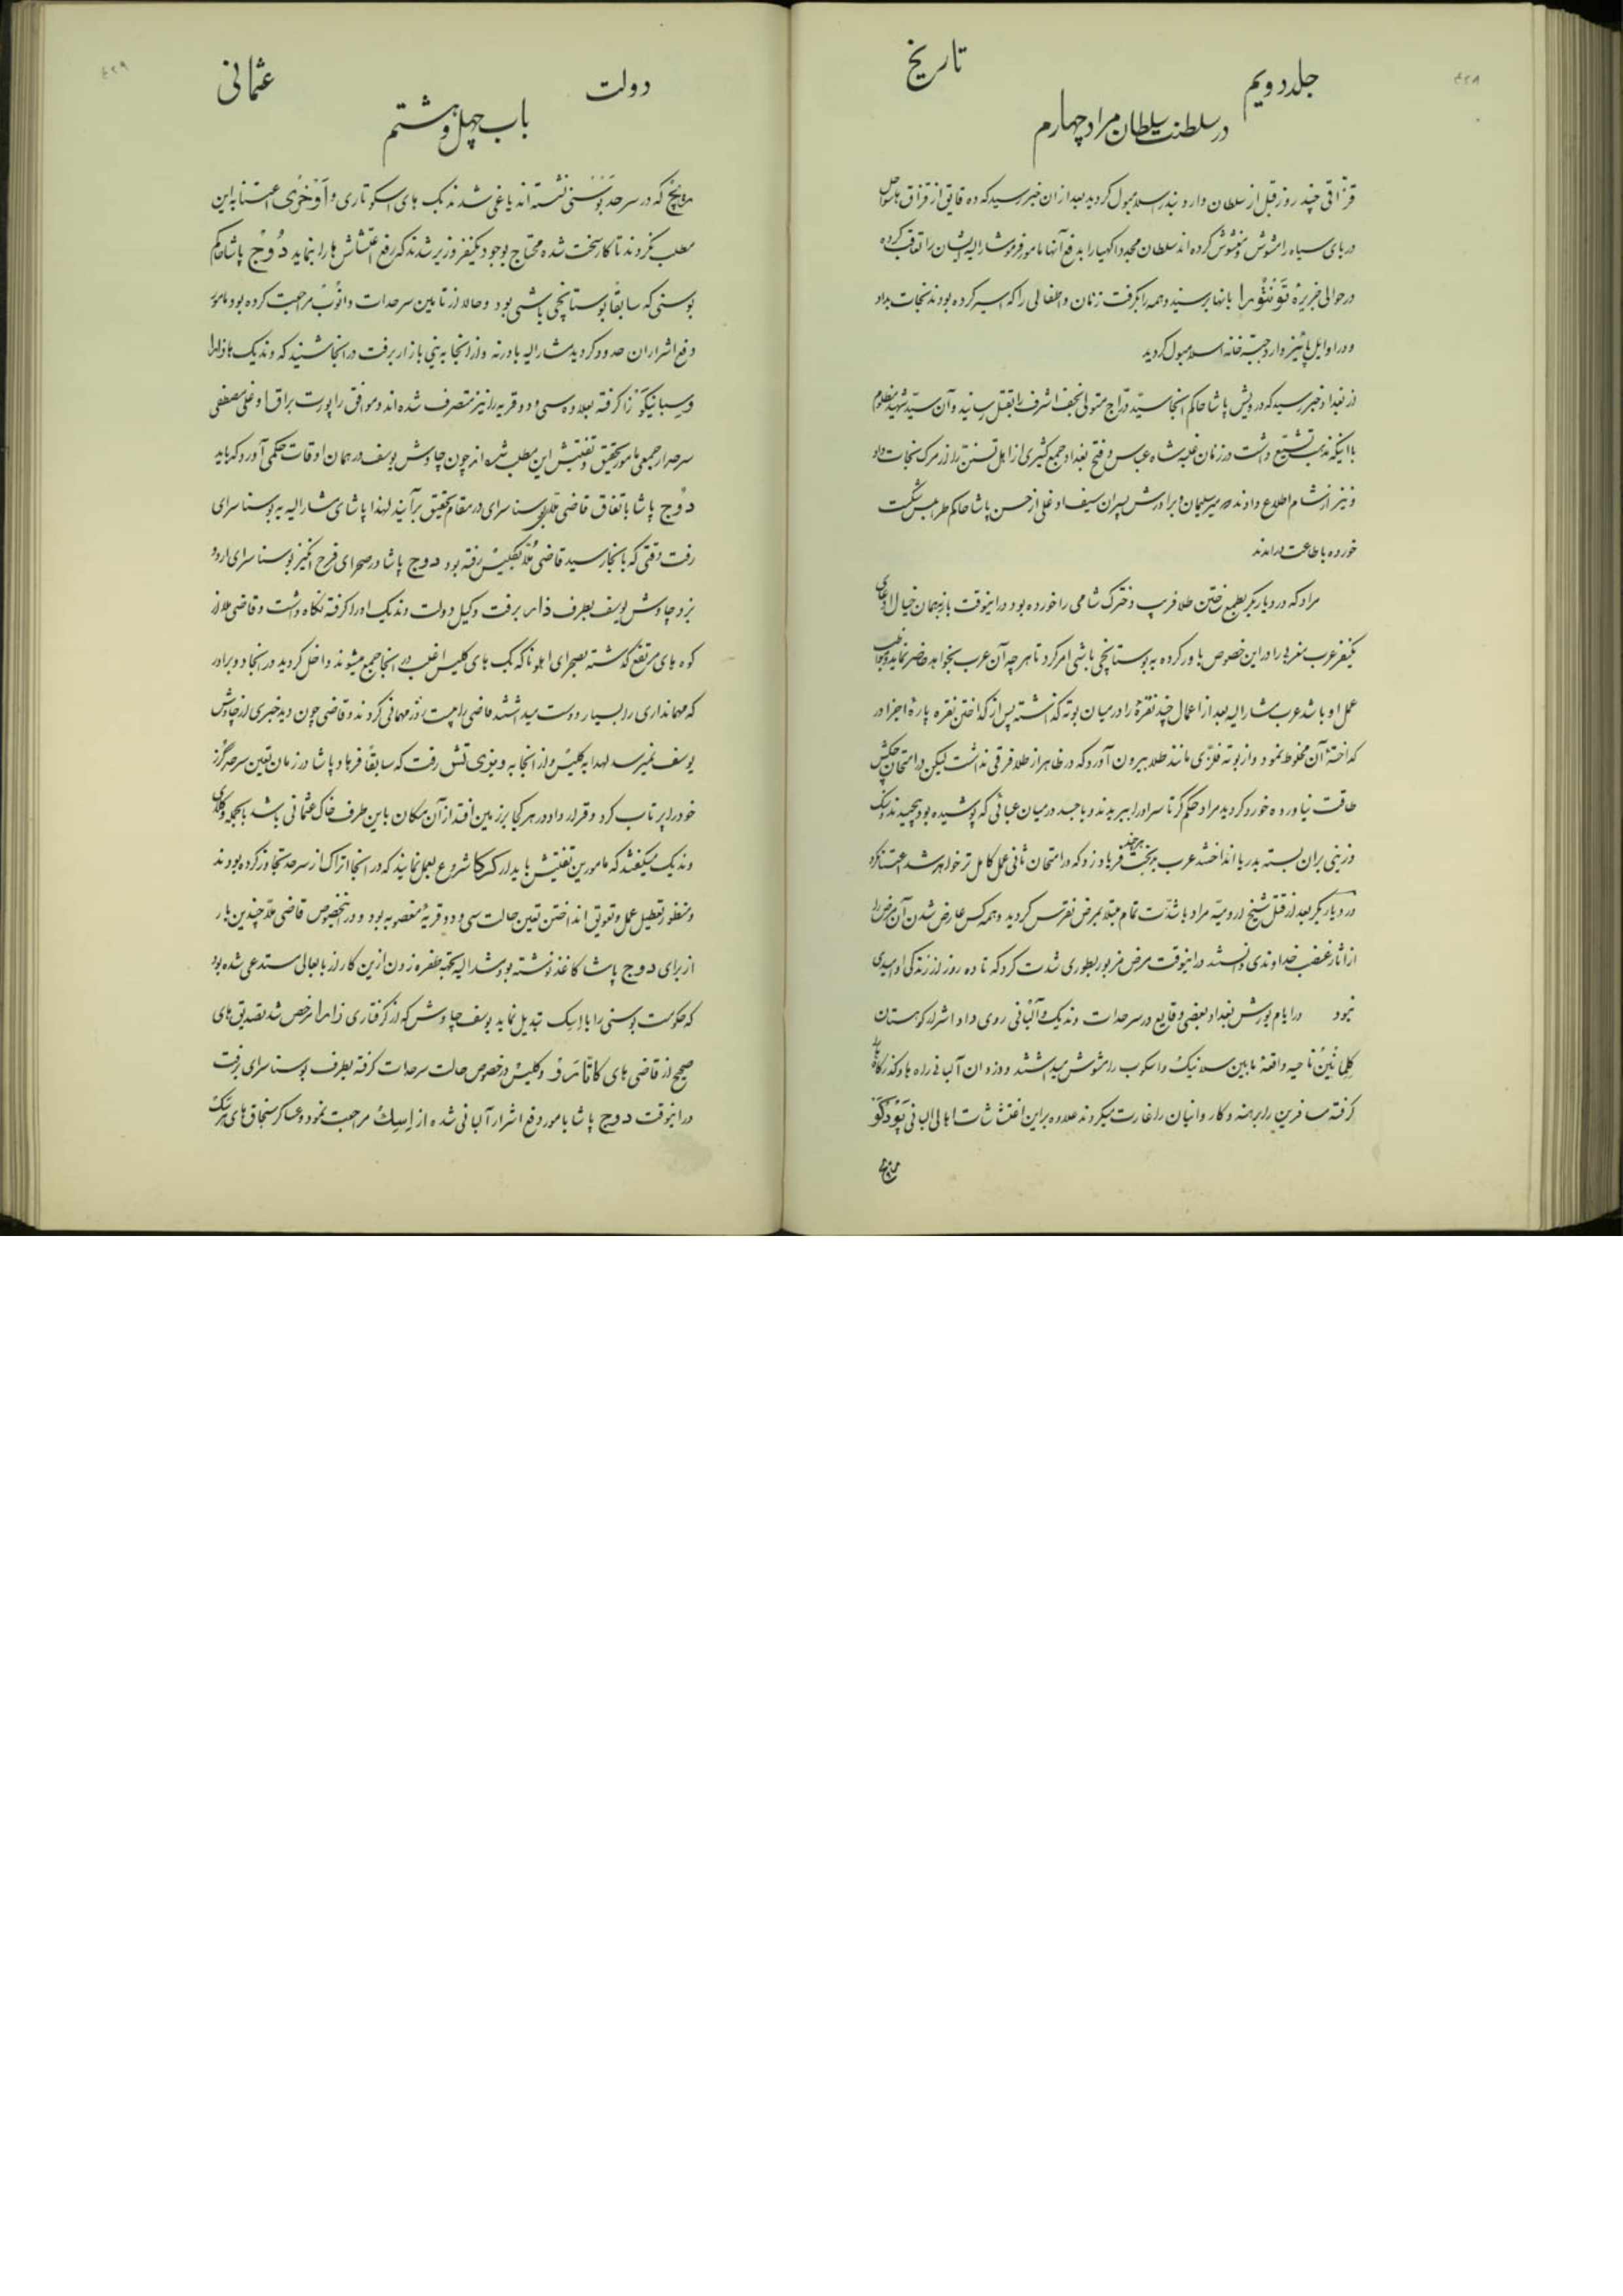 ۴۲۸
جلد دویم
تاریخ
در سلطنت سلطان مراد چهارم
قزاقی چند روز قبل از سلطان وارد بندر اسلامبول کردید بعد از ان خبر رسید که ده قایق از قزاق
دریای سیاه را مشوش و مغشوش کرده اند سلطان مجددا کهیا را بدفع آنها مامور فرمود مشارالیه ایشان را تعاقب کرده
در حوالی جزیره بانها برسید و همه را بکرفت زنان و اطفالی را که اسیر کرده بودند نجات بداد
و در اوایل پائیز وارد جبه خانه اسلامبول کردید
از بغداد خبر رسید که درویش پاشا حاکم انجا سید دراج متولی نجف اشرف را بقتل رسانید و آن سید شهید مظلوم
با اینکه مذهب تشیع داشت در زمان غلبه شاه عباس و فتح بغداد جمع کثیری از اهل تسنن را از مرک نجات داد
و نیز از شام اطلاع دادند که میر سلیمان و برادرش پسران سیف اوغلی از حسن پاشا حاکم طرابلس شکست
خورده باطاعت درامدند
مراد که در دیاربکر بطمع ساختن طلا فریب دخترک شامی را خورده بود در اینوقت باز بهمان خیال افتاده
یکنفر عرب مغربی را در این خصوص باور کرده به بوستانچی باشی امر کرد تا هر چه آن عرب بخواهد حاضر نماید
عمل او باشد عرب مشارالیه بعد از اعمال چند نقره را در میان بوته کذاشته پس از کداختن نقره پارهٔ اجزا در
کداختهٔ آن مخلوط نمود و از بوته فلزی مانند طلا بیرون آورد که در ظاهر از طلا فرقی نداشت لیکن در امتحان چکش
طاقت نیاورده خورد کردید مراد حکم کرد تا سر او را ببریدند و با جسد در میان عبائی که پوشیده بود پیچیدند و سنک
وزینی بران بسته بدریا انداختند عرب بدبخت هر چند فریاد زد که در امتحان ثانی عمل کامل تر خواهد شد اعتنا نکرد
در دیاربکر بعد از قتل شیخ ارومیه مراد باشدت تمام مبتلا بمرض نقرس کردید و همه کس عارض شدن آن مرض را
از اثار غضب خداوندی دانستند در اینوقت مرض مزبور بطوری شدت کرد که تا ده روز از زندکی او امیدی
نبود در ایام یورش بغداد بعضی وقایع در سرحدات وندیک و آلبانی روی داد اشرار کوهستان
ناحیه واقعه مابین سلانیک و اسکوب را مشوش میداشتند و دزدان آلبانی راه ها و کذرکاه ها
کرفته مسافرین را برهنه و کاروانیان را غارت میکردند علاوه براین اغتشاشات اهالی البانی
۴۲۹
دولت
عثمانی
باب چهل و هشتم
که در سرحد بوسنی نشسته اند یاغی شدند بک های اسکوتاری و اوخری اعتنا به این
مطلب نکردند تا کار سخت شده محتاج بوجود یکنفر وزیر شدند که رفع اغتشاش ها را بنماید دوج پاشا حاکم
بوسنی که سابقاً بوستانچی باشی بود و حالا از تامین سرحدات مراجعت کرده بود مامور
دفع اشراران حدود کردید مشارالیه بادرنه و از انجا به ینی بازار برفت در انجا شنید که وندیک ها
را کرفته بعلاوه سی و دو قریه را نیز متصرف شده اند و موافق راپورت براق اوغلی مصطفی
سرحددار جمعی مامور تحقیق و تفتیش این مطلب شده اند چون چاوش یوسف در همان اوقات حکمی آورد که باید
دوج پاشا باتفاق قاضی بوسنا سرای در مقام تحقیق برآیند لهذا پاشای مشارالیه به بوسنا سرای
رفت وقتی که بانجا رسید قاضی ملا بکلیس رفته بود دوج پاشا در صحرای فرح انکیز بوسنا سرای اردو
بزد چاوش یوسف بطرف ذارا برفت وکیل دولت وندیک او را کرفته نکاه داشت و قاضی ملا از
کوه های مرتفع کذشته بصحرای که بک های کلیس اغلب در انجا جمع میشوند داخل کردید در انجا دو برادر
که مهمانداری را بسیار دوست میداشتند قاضی را بیست روز مهمانی کردند و قاضی چون دید خبری از چاوش
یوسف نمیرسد لهذا به کلیس و از انجا به رفت که سابقاً فرهاد پاشا در زمان تعین سرحد کرز
خود را پرتاب کرد و قرار داد در هر کجا بزمین افتد از آن مکان باین طرف خاک عثمانی باشد
وندیک میکفتند که مامورین تفتیش باید از شروع بعمل نمایند که در انجا اتراک از سرحد تجاوز کرده بودند
و منظور تعطیل عمل و تعویق انداختن تعین حالت سی و دو قریهٔ مغصوبه بود و در اینخصوص قاضی ملا چندین بار
از برای دوج پاشا کاغذ نوشته بود مشارالیه بجهة طفره زدن ازین کار از بابعالی مستدعی شده بود
که حکومت بوسنی را با تبدیل نماید یوسف چاوش که از کرفتاری ذارا مرخص شد تصدیق های
صحیح از قاضی های و کلیس در خصوص حالت سرحدات کرفته بطرف بوسنا سرای برفت
در اینوقت دوج پاشا مامور دفع اشرار آلبانی شده از مراجعت نمود و عساکر سنجاق های